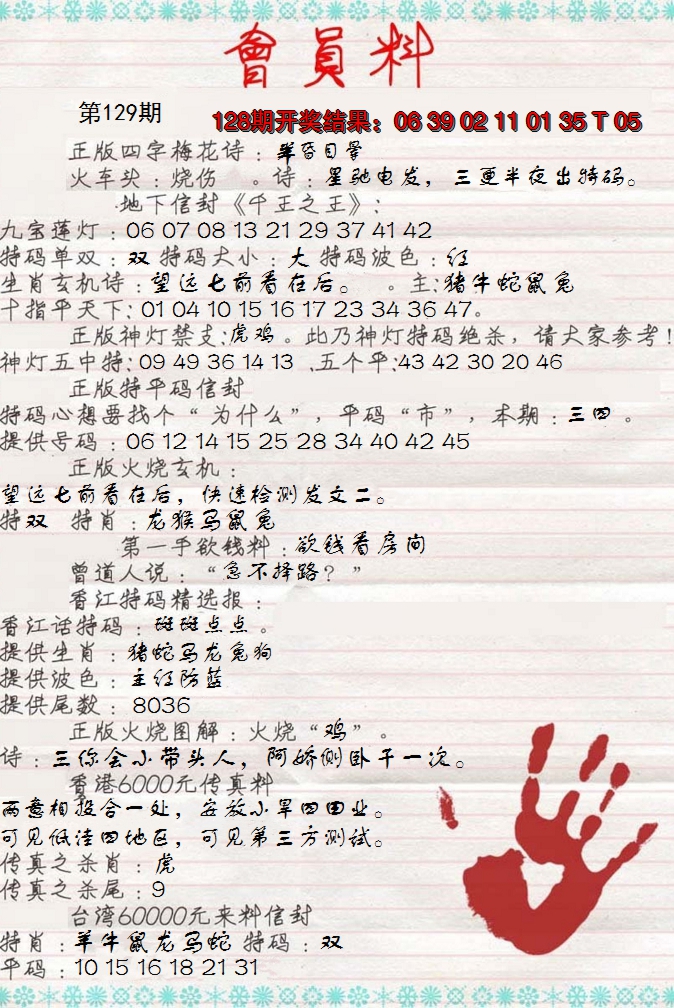 會員料
第129期
128期开奖结果：06 39 02 11 01 35 T 05
正版四字梅花诗：半昏目晕
火车头：烧伤 。诗：星驰电发，三更半夜出特码。
地下信封《千王之王》：
九宝莲灯：06 07 08 13 21 29 37 41 42
特码单双：双 特码大小：大 特码波色：红
生肖玄机诗：望远七前看在后。 。主：猪牛蛇鼠兔
十指平天下：01 04 10 15 16 17 23 34 36 47。
正版神灯禁支：虎鸡。此乃神灯特码绝杀，请大家参考！
神灯五中特：09 49 36 14 13 、五个平：43 42 30 20 46
正版特平码信封
特码心想要找个“为什么”，平码“市”，本期：三四 。
提供号码：06 12 14 15 25 28 34 40 42 45
正版火烧玄机：
望远七前看在后，快速检测发文二。
特双 特肖：龙猴马鼠兔
第一手欲钱料：欲钱看房间
曾道人说：“急不择路？”
香江特码精选报：
香江话特码：斑斑点点。
提供生肖：猪蛇马龙兔狗
提供波色：主红防蓝
提供尾数：8036
正版火烧图解：火烧“鸡”。
诗：三你会小带头人，阿娇侧卧干一次。
香港6000元传真料
两意相投合一处，安放小旱四田业。
可见低洼四地区，可见第三方测试。
传真之杀肖：虎
传真之杀尾：9
台湾60000元来料信封
特肖：羊牛鼠龙马蛇 特码：双
平码：10 15 16 18 21 31